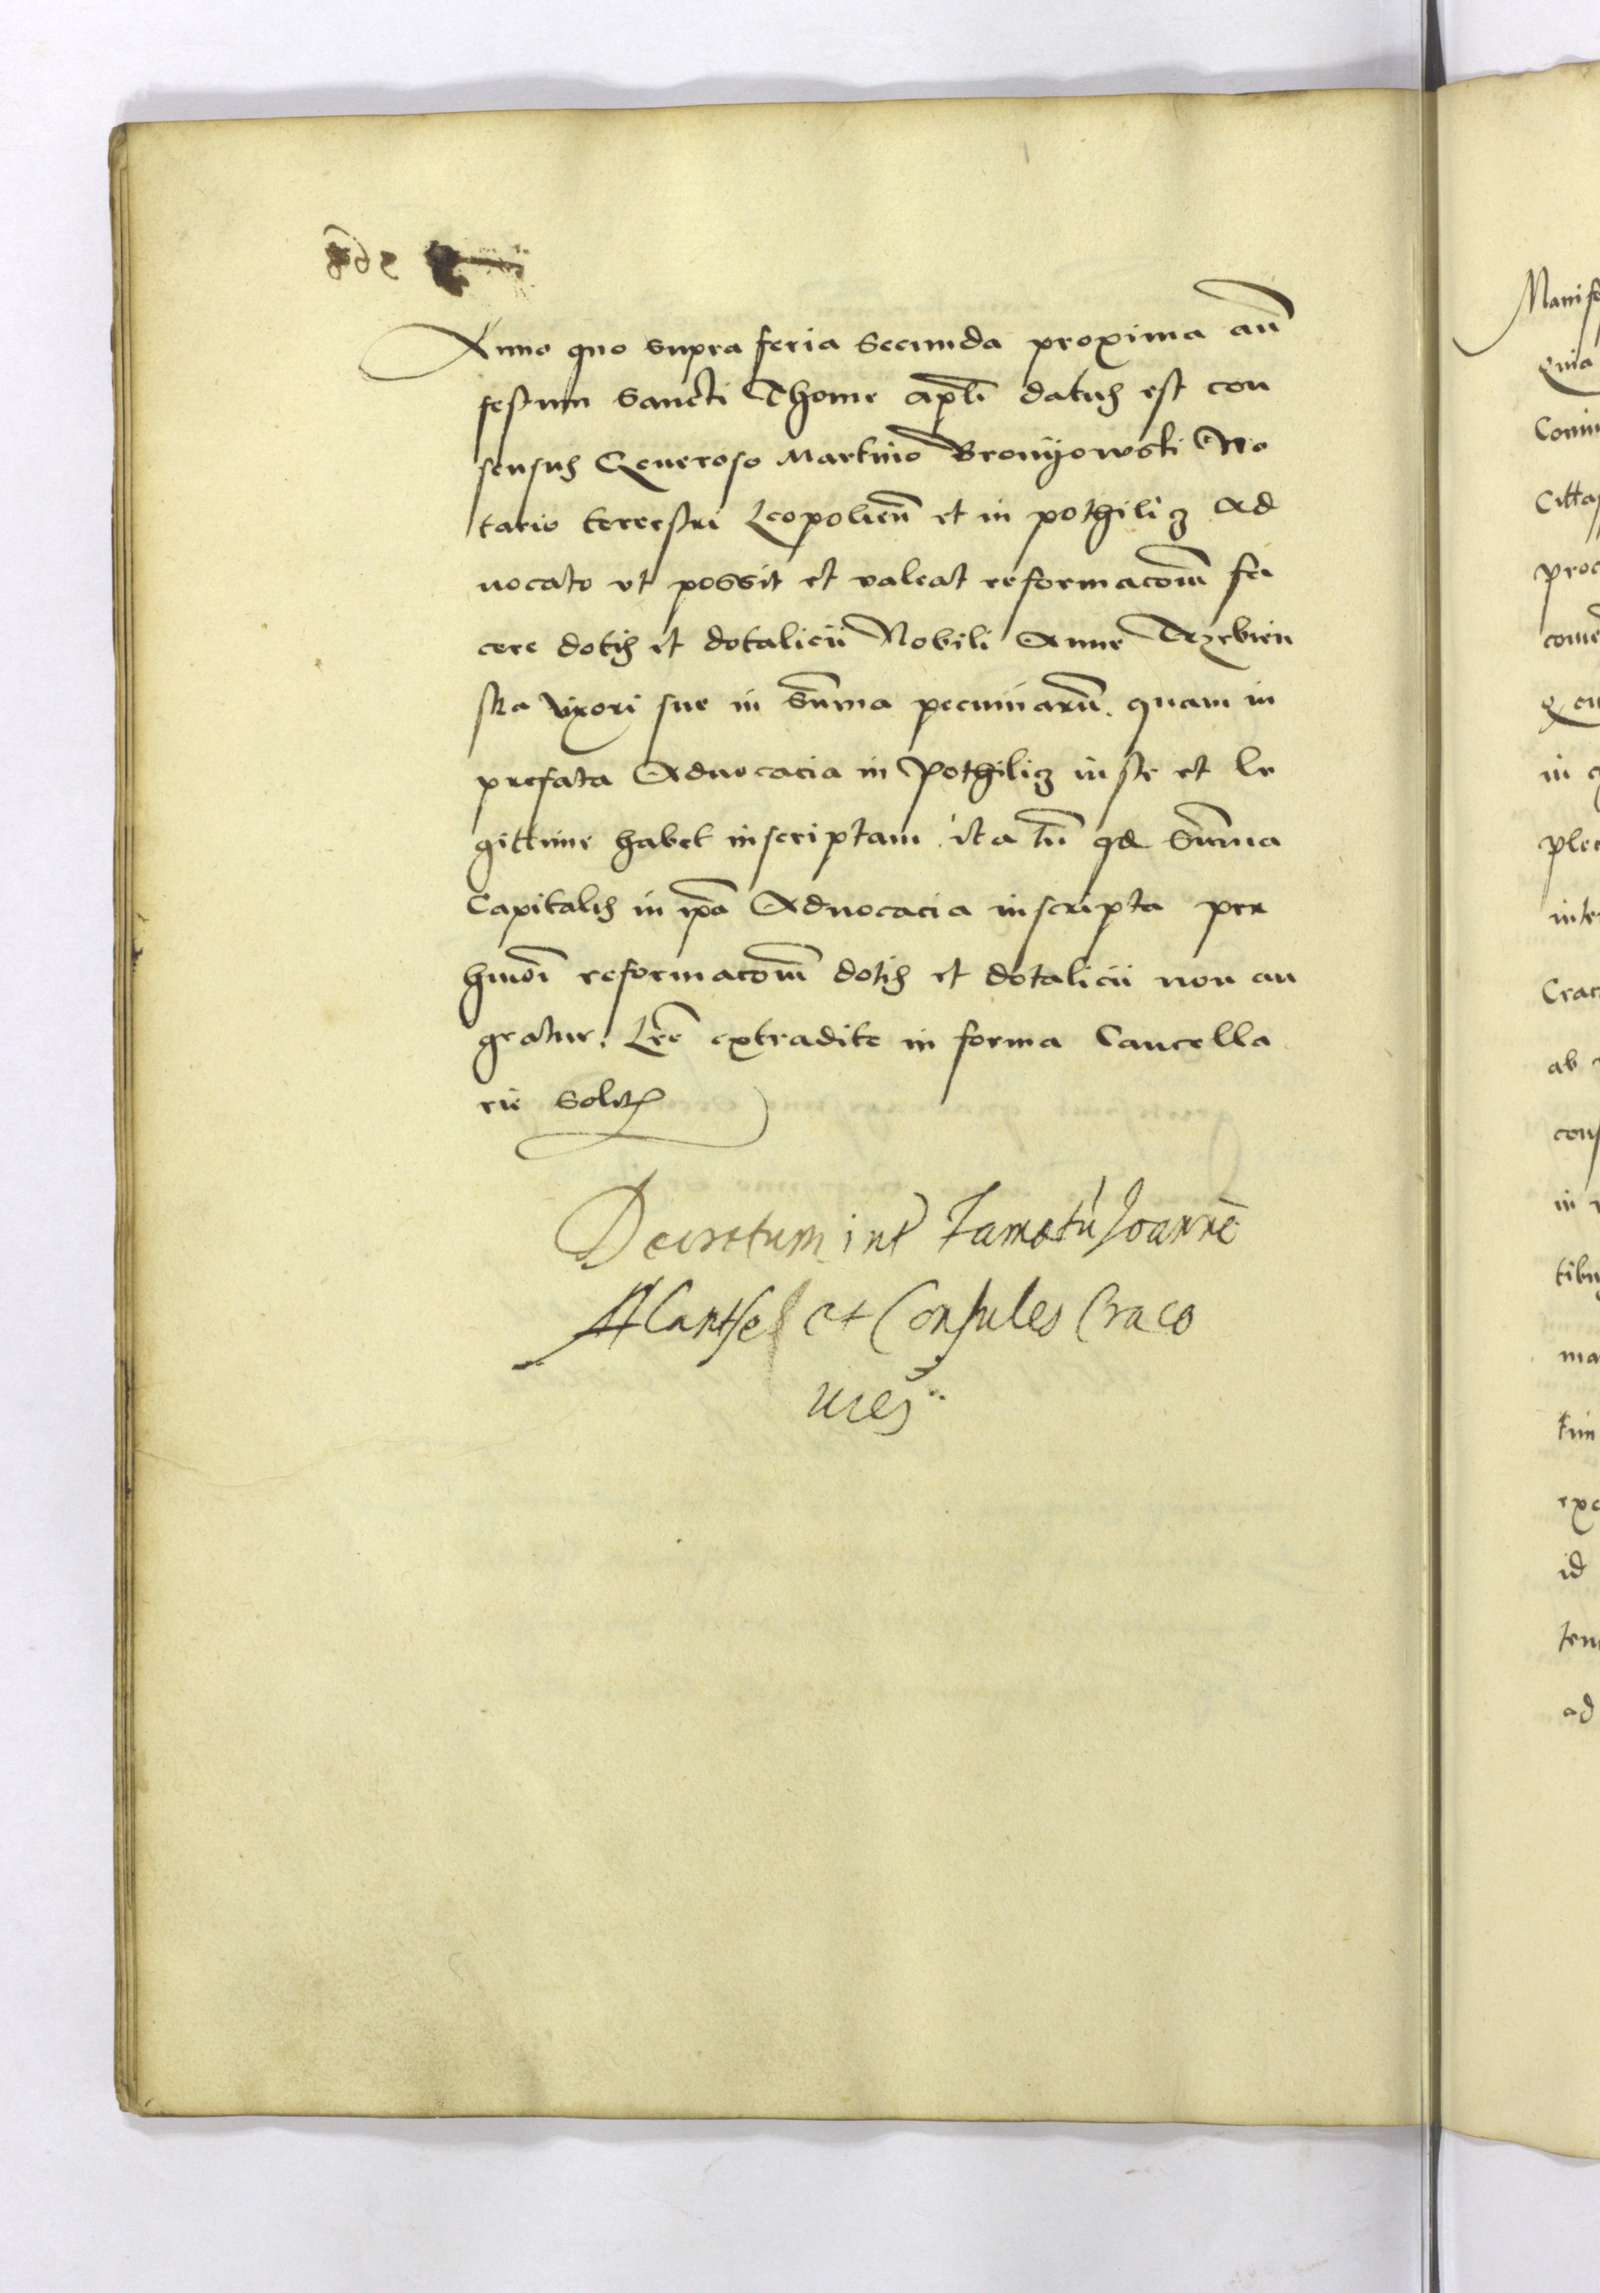 Anno quo supra feria Secunda proxima an̄
festum Sancti Thome apl̄i datus est con
sensus Generoso Martino Bronyowski No
tario terrestri Leopolien̄ et in pothilicz Ad
uocato vt possit et valeat reformac̄om̄ fa
cere dotis et dotalicii Nobili Anne Trzebien
ska vxori sue in Sum̄a pecuniarū. quam in
prefata Aduocacia in Pothilicz iuste et le
gittime habet inscriptam. ita tn̄ qd Sum̄a
Capitalis in ip̄a Aduocacia inscripta per
hmōi reformac̄om̄ dotis et dotalicii non au
geatur. Lr̄e extradite in forma Cancella
rie Solit
Decretum int Famatū Joannē
Alantse et Consules Craco
uieñ
Manife
quia
Citta
proc
in
plec
inte
Crac
ab
cons
in
tibu
ma
tim
exc
id
ten
ad